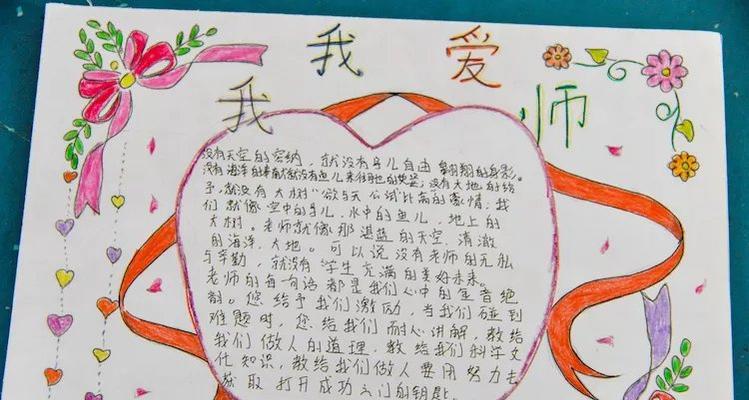 我 爱
我 师
没有天空的容纳，就没有鸟儿自由翱翔的身影。
没有海洋的就没有鱼儿来往的；没有大地的给
予，就没有大树“欲与天公试比高的豪情。我
们就像空中的鸟儿，水中的鱼儿，地上的
大树。老师就像那湛蓝的天空，清澈
的海洋，大地。可以说没有老师的无私
与辛勤，就没有学生充满的美好未来。
老师的每一句话都是我们心中的金音绝
韵。您给予我们激励，当我们碰到
难题时，您给我们耐心讲解，教给
我们做人的道理，教给我们科学文
化知识，教给我们做人要用努力去
获取打开成功之门的钥匙。